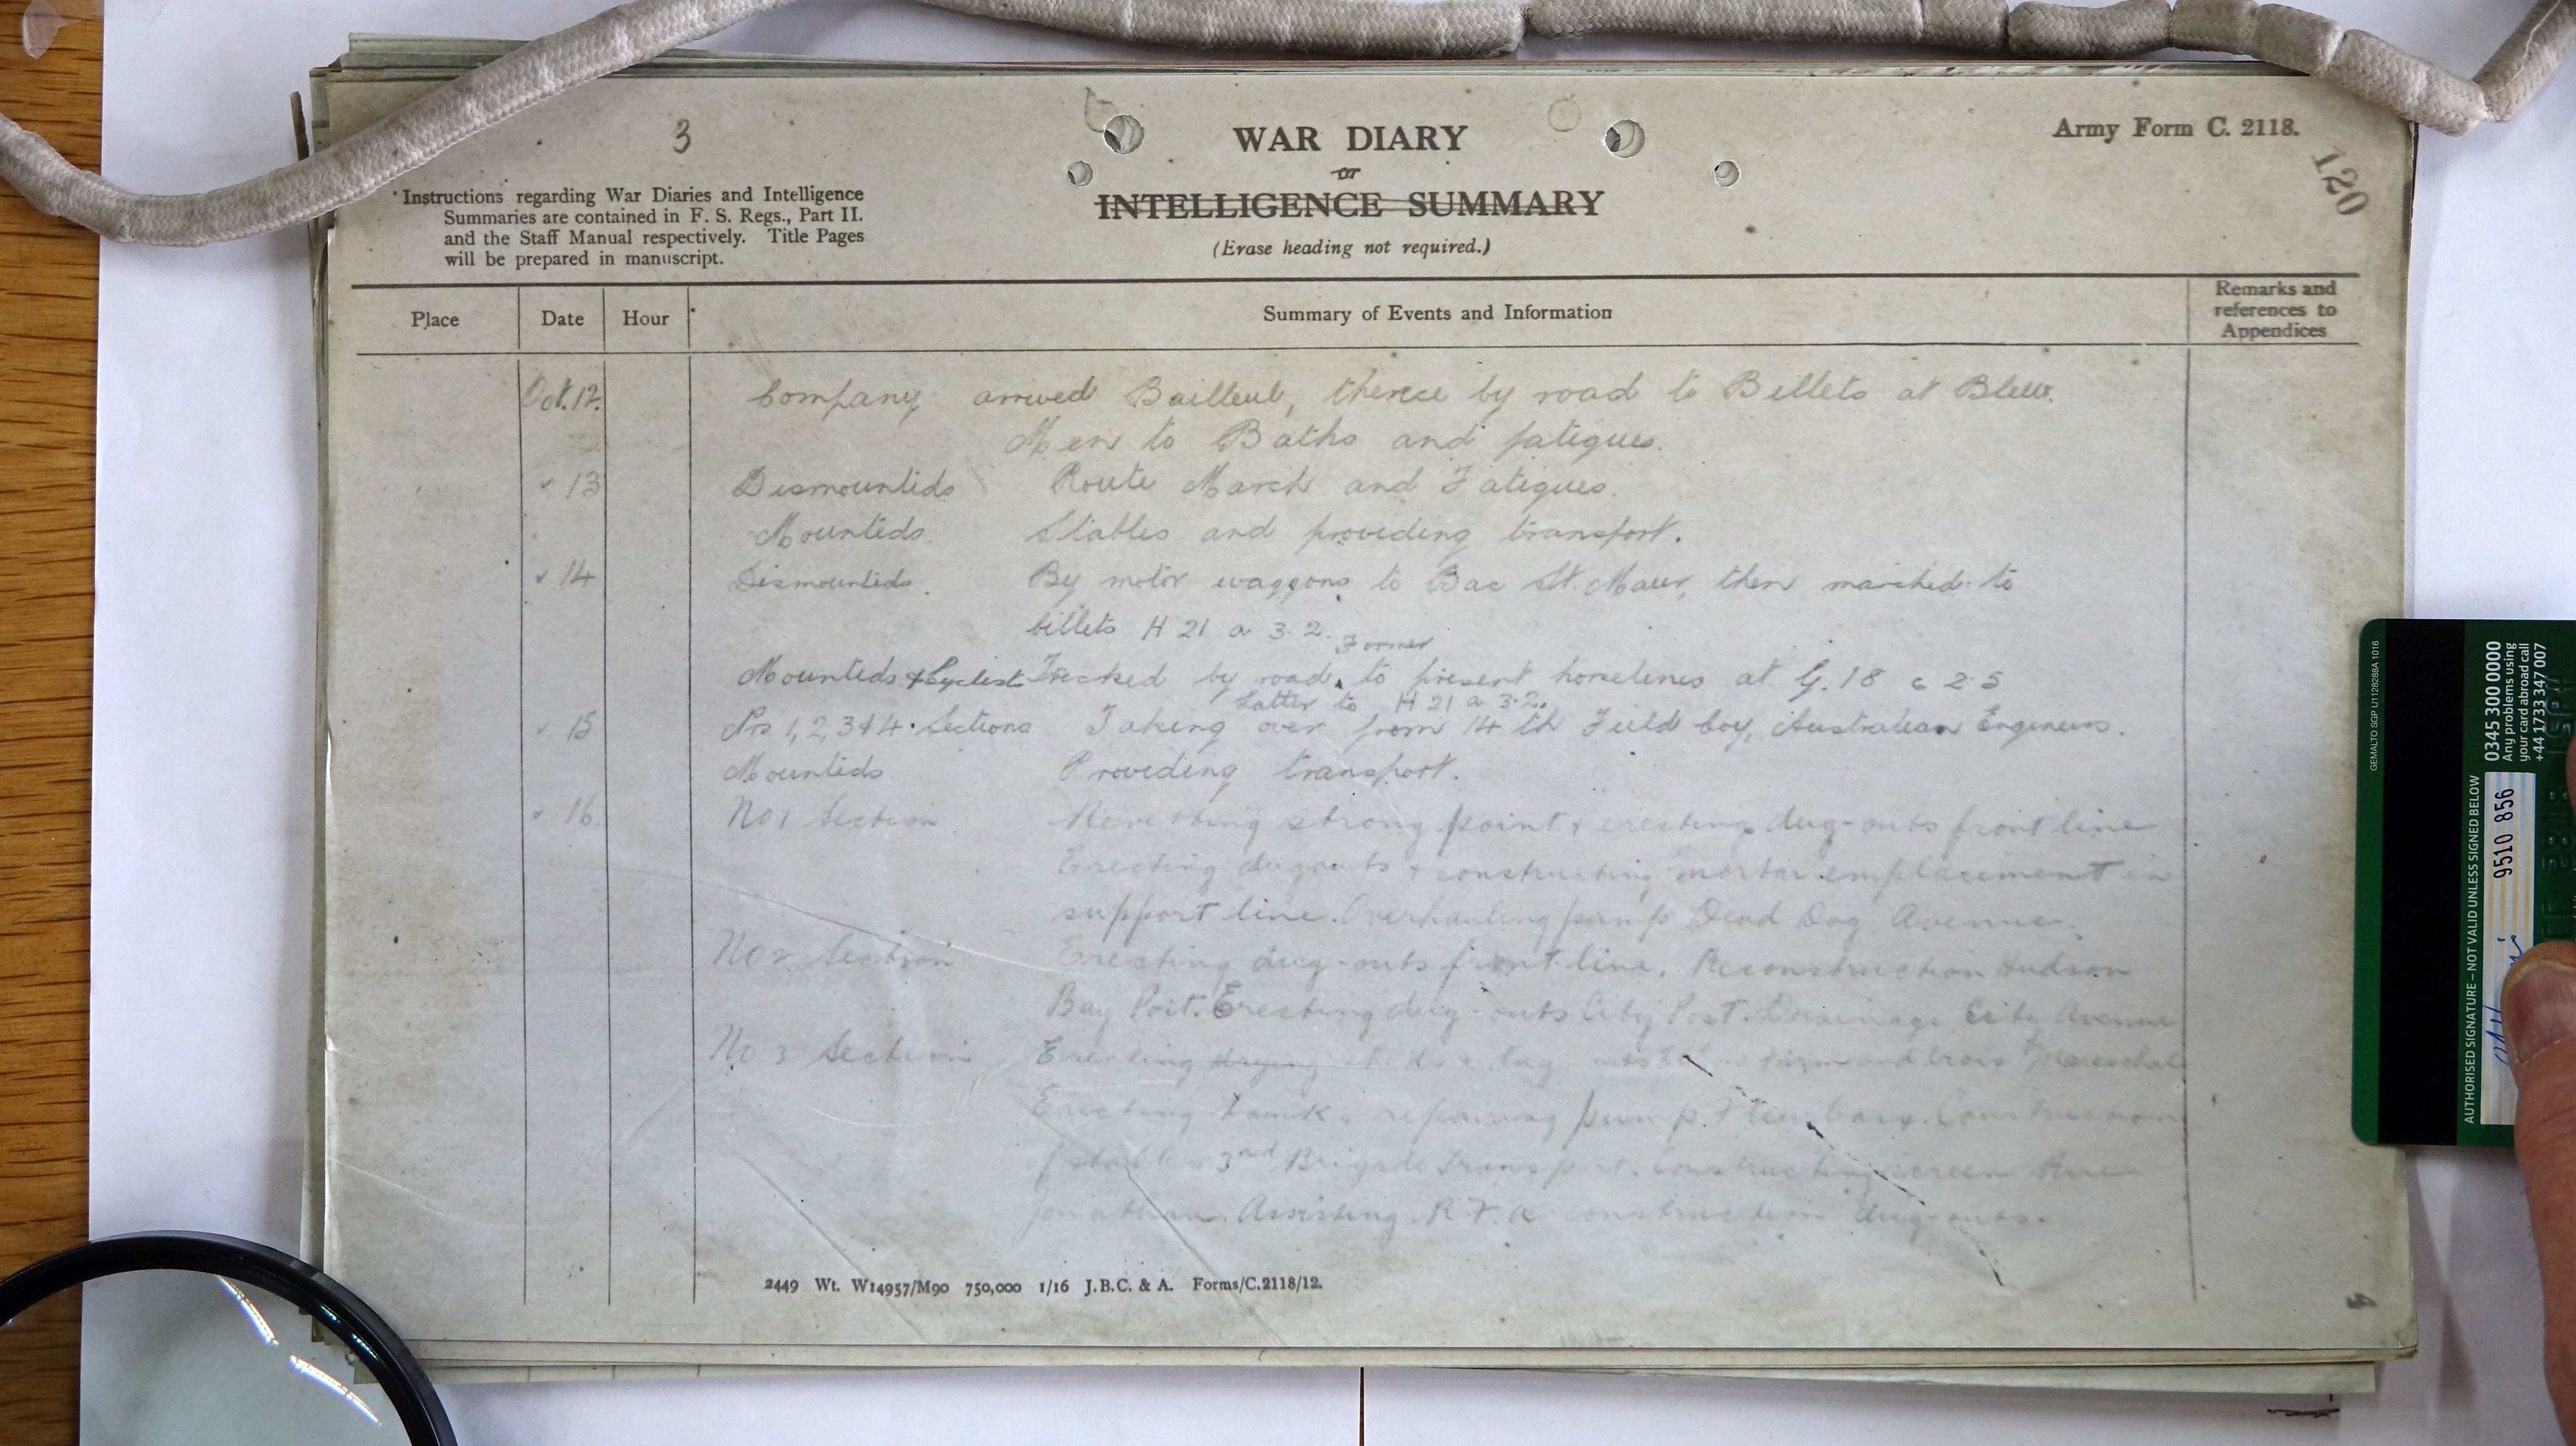 3
WAR DIARY
or
INTELLIGENCE SUMMARY
(Erase heading not required.)
Army Form C. 2118.
120
Instructions regarding War Diaries and Intelligence
Summaries are contained in F. S. Regs., Part II.
and the Staff Manual respectively. Title Pages
will be prepared in manuscript.
Place Date Hour Summary of Events and Information Remarks and references to Appendices
Oct. 12. Company arrived Bailleul, thence by road to Billets at Bleu.
Men to Baths and fatigues.
" 13 Dismounteds Route March and Fatigues.
Mounteds. Stables and providing transport.
" 14 Dismounteds. By motor waggons to Bac St. Maur, then marched to
billets H 21 a 3.2.
Former
Mounteds & Cyclists Trecked by road, to present horselines at G. 18 c 2.5
Latter to H 21 a 3.2.
" 15 Nos. 1, 2, 3 & 4 Sections Taking over from 14th Field Coy, Australian Engineers.
Mounteds Providing transport.
" 16 No 1 Section. Revetting strong point & erecting dug-outs front line
Erecting dugouts & constructing mortar emplacement in
support line. Overhauling pump Dead Dog Avenue.
No 2 Section Erecting dug-outs front line. Reconstruction Hudson
Bay Post. Erecting dug-outs City Post. Drainage City Avenue
No 3 Section Erecting drying and Croix Mareschal
Erecting tank & repairing pump. Fleurbaix. Construction
of stables 3rd Brigade transport. Constructing screen Rue
Jonathan. Assisting R.F.A construction dug-outs.
2449 Wt. W14957/M90 750,000 1/16 J.B.C. & A. Forms/C.2118/12.
4
GEMALTO SGP U1128288A 1016
AUTHORISED SIGNATURE – NOT VALID UNLESS SIGNED BELOW
0345 300 0000
Any problems using
your card abroad call
+44 1733 347 007